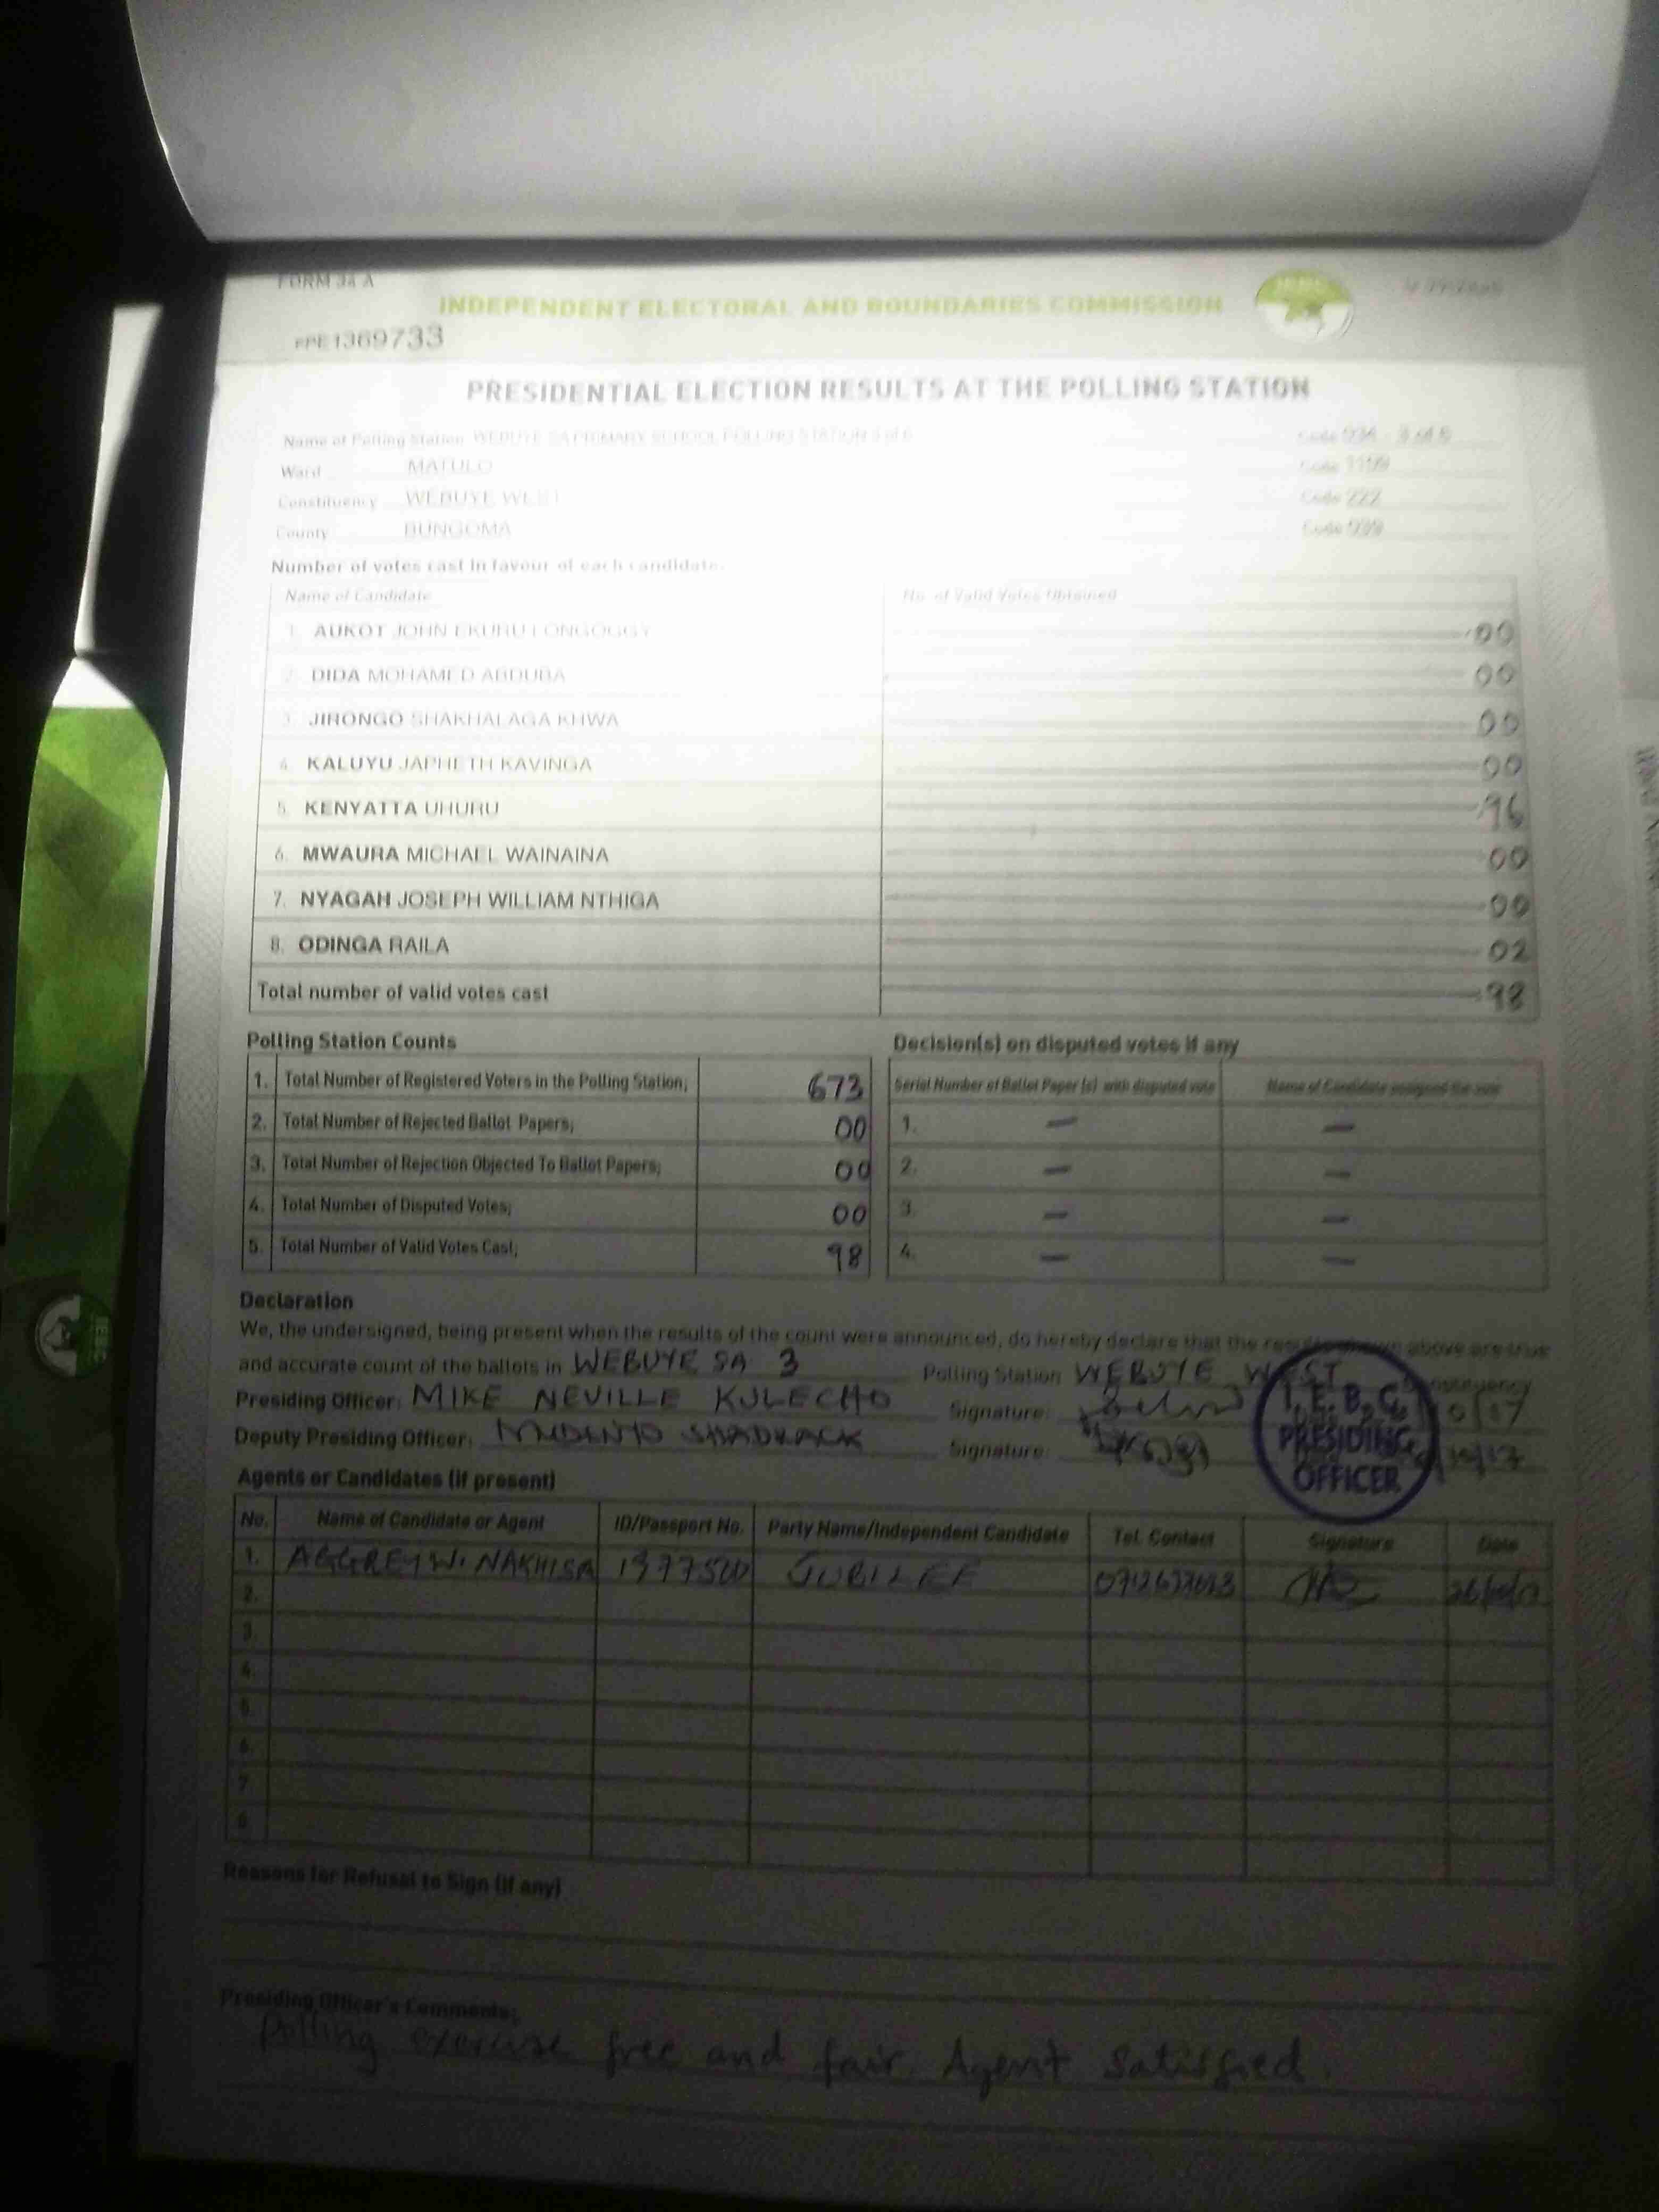 FORM 34 A
INDEPENDENT ELECTORAL AND BOUNDARIES COMMISSION
PPE1369733
PRESIDENTIAL ELECTION RESULTS AT THE POLLING STATION
Name of Polling Station WEBUYE SA PRIMARY SCHOOL POLLING STATION 3 of 6 Code 034 - 3 of 6
Ward MATULO Code 1109
Constituency WEBUYE WEST Code 222
County BUNGOMA Code 039
Number of votes cast in favour of each candidate.
Name of Candidate No. of Valid Votes Obtained
1. AUKOT JOHN EKURU LONGOGGY 00
2. DIDA MOHAMED ABDUBA 00
3. JIRONGO SHAKHALAGA KHWA 00
4. KALUYU JAPHETH KAVINGA 00
5. KENYATTA UHURU 96
6. MWAURA MICHAEL WAINAINA 00
7. NYAGAH JOSEPH WILLIAM NTHIGA 00
8. ODINGA RAILA 02
Total number of valid votes cast 98
Polling Station Counts Decision(s) on disputed votes if any
1. Total Number of Registered Voters in the Polling Station; 673 Serial Number of Ballot Paper (s) with disputed vote Name of Candidate assigned the vote
2. Total Number of Rejected Ballot Papers; 00 1. — —
3. Total Number of Rejection Objected To Ballot Papers; 00 2. — —
4. Total Number of Disputed Votes; 00 3. — —
5. Total Number of Valid Votes Cast; 98 4. — —
Declaration
We, the undersigned, being present when the results of the count were announced, do hereby declare that the results shown above are true
and accurate count of the ballots in WEBUYE SA 3 Polling Station WEBUYE WEST Constituency
Presiding Officer: MIKE NEVILLE KULECHO Signature:
Deputy Presiding Officer: SHADRACK Signature:
I.E.B.C
PRESIDING
OFFICER
Agents or Candidates (if present)
No. Name of Candidate or Agent ID/Passport No. Party Name/Independent Candidate Tel. Contact Signature Date
1. AGGREY W. NAKHISA JUBILEE
2.
3.
4.
5.
6.
7.
8.
Reasons for Refusal to Sign (if any)
Presiding Officer's Comments:
Polling exercise free and fair. Agent satisfied.